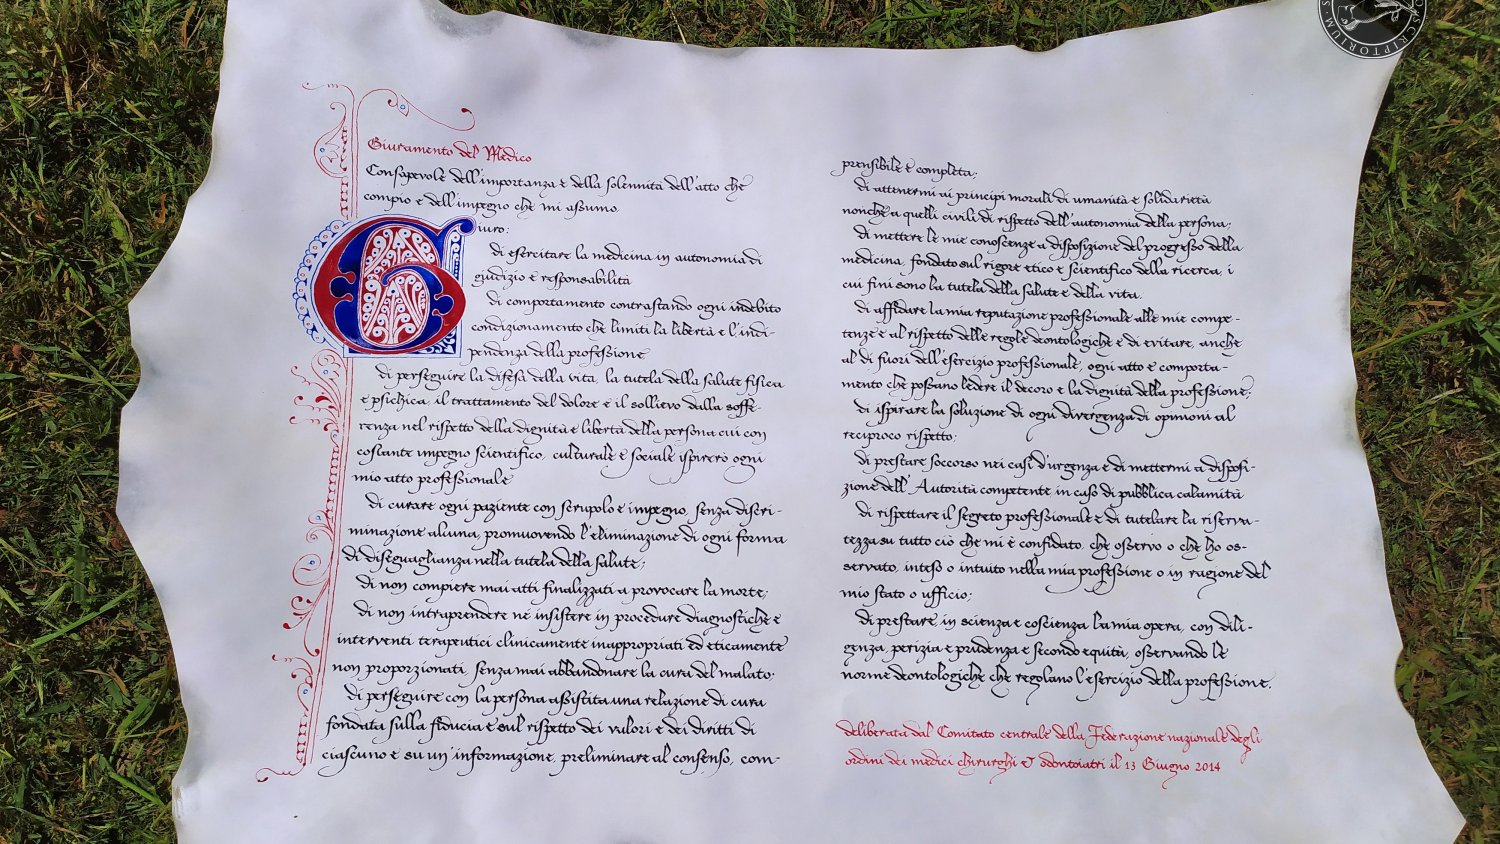 Giuramento del Medico
Consapevole dell'importanza e della solennità dell'atto che
compio e dell'impegno che mi assumo,
Giuro:
di esercitare la medicina in autonomia di
giudizio e responsabilità
di comportamento contrastando ogni indebito
condizionamento che limiti la libertà e l'indi-
pendenza della professione
di perseguire la difesa della vita, la tutela della salute fisica
e psichica, il trattamento del dolore e il sollievo dalla soffe-
renza nel rispetto della dignità e libertà della persona cui con
costante impegno scientifico, culturale e sociale ispirerò ogni
mio atto professionale
di curare ogni paziente con scrupolo e impegno, senza discri-
minazione alcuna, promuovendo l'eliminazione di ogni forma
di diseguaglianza nella tutela della salute;
di non compiere mai atti finalizzati a provocare la morte;
di non intraprendere né insistere in procedure diagnostiche e
interventi terapeutici clinicamente inappropriati ed eticamente
non proporzionati, senza mai abbandonare la cura del malato;
di perseguire con la persona assistita una relazione di cura
fondata sulla fiducia e sul rispetto dei valori e dei diritti di
ciascuno e su un'informazione, preliminare al consenso, com-
prensibile e completa;
di attenermi ai principi morali di umanità e solidarietà
nonché a quelli civili di rispetto dell'autonomia della persona;
di mettere le mie conoscenze a disposizione del progresso della
medicina, fondato sul rigore etico e scientifico della ricerca, i
cui fini sono la tutela della salute e della vita.
di affidare la mia reputazione professionale alle mie compe-
tenze e al rispetto delle regole deontologiche e di evitare, anche
al di fuori dell'esercizio professionale, ogni atto e comporta-
mento che possano ledere il decoro e la dignità della professione;
di ispirare la soluzione di ogni divergenza di opinioni al
reciproco rispetto;
di prestare soccorso nei casi d'urgenza e di mettermi a disposi-
zione dell'Autorità competente, in caso di pubblica calamità
di rispettare il segreto professionale e di tutelare la riserva-
tezza su tutto ciò che mi è confidato, che osservo o che ho os-
servato, inteso o intuito nella mia professione o in ragione del
mio stato o ufficio;
di prestare, in scienza e coscienza la mia opera, con dili-
genza, perizia e prudenza e secondo equità, osservando le
norme deontologiche che regolano l'esercizio della professione.
deliberata dal Comitato centrale della Federazione nazionale degli
ordini dei medici chirurghi e odontoiatri il 13 Giugno 2014